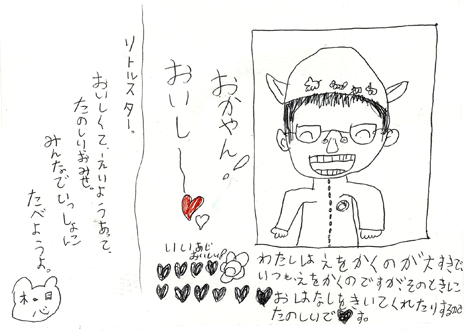 おかやん!
おいしー
いいあじ
おいしい!
わたしはえをかくのが大すきで
いつもえをかくのですがそのときに
おはなしをきいてくれたりするので
たのしいです。
リトルスター。
おいしくて、えいようあって、
たのしいおみせ。
みんなでいっしょに
たべようよ。